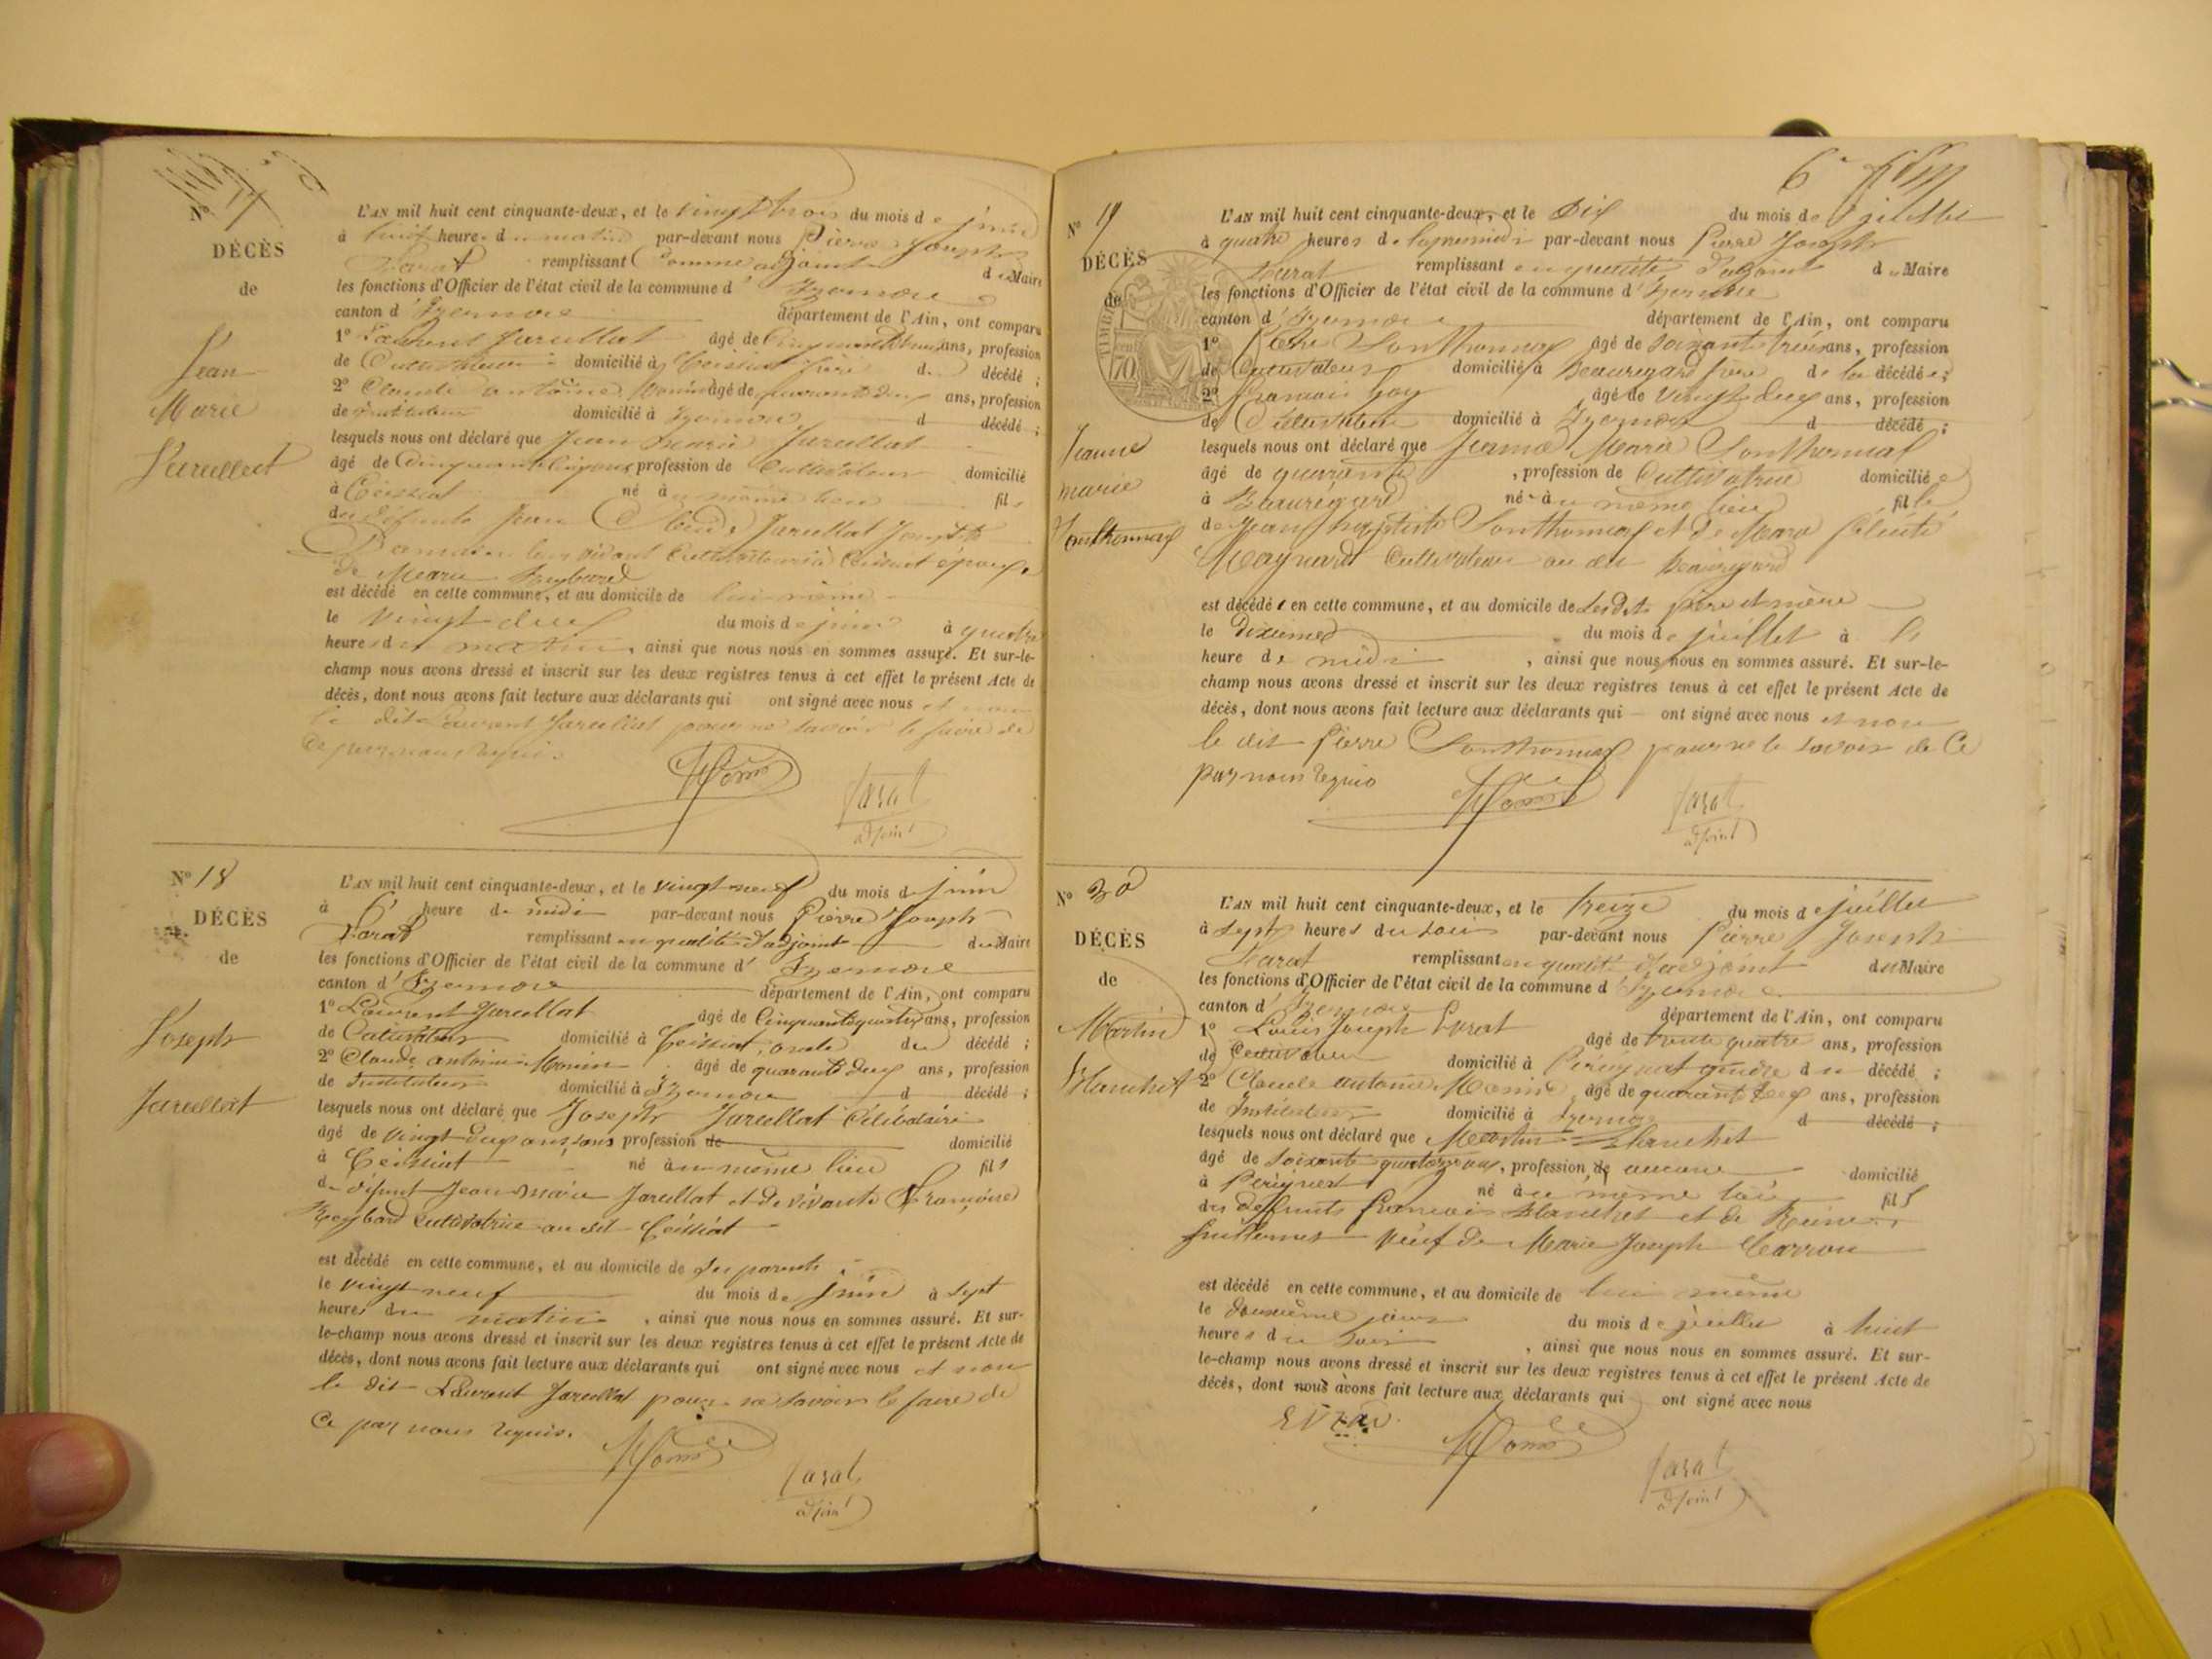 N° 17
DÉCÈS
de
Jean
Marie
Jarcellat
L'AN mil huit cent cinquante-deux, et le vingt trois du mois de juin
à huit heures du matin par-devant nous Pierre Joseph
remplissant comme adjoint du Maire
les fonctions d'Officier de l'état civil de la commune d' Izernore
canton d' Izernore département de l'Ain, ont comparu
1° Laurent Jarcellat âgé de ans, profession
de Cultivateur domicilié à Ceissiat frère du décédé ;
2° Claude antoine Monin âgé de quarante deux ans, profession
de instituteur domicilié à Izernore d décédé ;
lesquels nous ont déclaré que Jean Marie Jarcellat
âgé de Cinquante profession de Cultivateur domicilié
à Ceissiat né au même lieu fils
de défunts Jean Claude Jarcellat
époux
de Marie Reybard
est décédé en cette commune, et au domicile de lui même
le vingt deux du mois de juin à quatre
heures du matin, ainsi que nous nous en sommes assuré. Et sur-le-
champ nous avons dressé et inscrit sur les deux registres tenus à cet effet le présent Acte de
décès, dont nous avons fait lecture aux déclarants qui ont signé avec nous et non
le dit Laurent Jarcellat pour ne savoir le faire de
Ce par nous requis.
Monin
adjoint
N° 18
DÉCÈS
de
Joseph
Jarcellat
L'AN mil huit cent cinquante-deux, et le vingt neuf du mois de juin
à heure de midi par-devant nous Pierre Joseph
remplissant en qualité d'adjoint du Maire
les fonctions d'Officier de l'état civil de la commune d' Izernore
canton d' Izernore département de l'Ain, ont comparu
1° Laurent Jarcellat âgé de Cinquante quatre ans, profession
de Cultivateur domicilié à Ceissiat, oncle du décédé ;
2° Claude antoine Monin âgé de quarante deux ans, profession
de Instituteur domicilié à Izernore d décédé ;
lesquels nous ont déclaré que Joseph Jarcellat Célibataire
âgé de vingt deux ans, sans profession de domicilié
à Ceissiat né au même lieu fils
de défunt Jean marie Jarcellat et de vivante Françoise
Reybard Cultivatrice au dit Ceissiat
est décédé en cette commune, et au domicile de ses parents
le vingt neuf du mois de juin à sept
heures du matin, ainsi que nous nous en sommes assuré. Et sur-
le-champ nous avons dressé et inscrit sur les deux registres tenus à cet effet le présent Acte de
décès, dont nous avons fait lecture aux déclarants qui ont signé avec nous et non
le dit Laurent Jarcellat pour ne savoir le faire de
Ce par nous requis.
Monin
adjoint
6e
N° 19
DÉCÈS
de
TIMBRE
70
Jeanne
marie
Sonthonnax
L'AN mil huit cent cinquante-deux, et le Dix du mois de juillet
à quatre heures de l'apresmidi par-devant nous Pierre Joseph
remplissant en qualité d'adjoint du Maire
les fonctions d'Officier de l'état civil de la commune d' Izernore
canton d' Izernore département de l'Ain, ont comparu
1° Pierre Sonthonnax âgé de soixante trois ans, profession
de Cultivateur domicilié à Beauregard frère de la décédée ;
2° François Goy âgé de vingt deux ans, profession
de Cultivateur domicilié à Izernore d décédé ;
lesquels nous ont déclaré que Jeanne Marie Sonthonnax
âgé de quarante , profession de Cultivatrice domiciliée
à Beauregard née au même lieu fille
de Jean baptiste Sonthonnax et de Marie
Maynard Cultivateurs au dit Beauregard
est décédée en cette commune, et au domicile de ses dits père et mère
le Dixième du mois de juillet à
heure de midi , ainsi que nous nous en sommes assuré. Et sur-le-
champ nous avons dressé et inscrit sur les deux registres tenus à cet effet le présent Acte de
décès, dont nous avons fait lecture aux déclarants qui ont signé avec nous et non
le dit Pierre Sonthonnax pour ne le savoir de Ce
par nous requis
Monin
adjoint
N° 20
DÉCÈS
de
Martin
Blanchet
L'AN mil huit cent cinquante-deux, et le treize du mois de juillet
à sept heures du soir par-devant nous Pierre Joseph
remplissant en qualité d'adjoint du Maire
les fonctions d'Officier de l'état civil de la commune d' Izernore
canton d' Izernore département de l'Ain, ont comparu
1° Louis Joseph Evrat âgé de trente quatre ans, profession
de Cultivateur domicilié à Pérignat gendre du décédé ;
2° Claude antoine Monin âgé de quarante deux ans, profession
de Instituteur domicilié à Izernore d décédé ;
lesquels nous ont déclaré que Martin Blanchet
âgé de soixante quatorze ans, profession de aucune domicilié
à Pérignat né au même lieu fils
des deffunts François Blanchet et de Reine
veuf de Marie Joseph Carron
est décédé en cette commune, et au domicile de lui même
le douzième jour du mois de juillet à huit
heures du soir , ainsi que nous nous en sommes assuré. Et sur-
le-champ nous avons dressé et inscrit sur les deux registres tenus à cet effet le présent Acte de
décès, dont nous avons fait lecture aux déclarants qui ont signé avec nous
Monin
adjoint